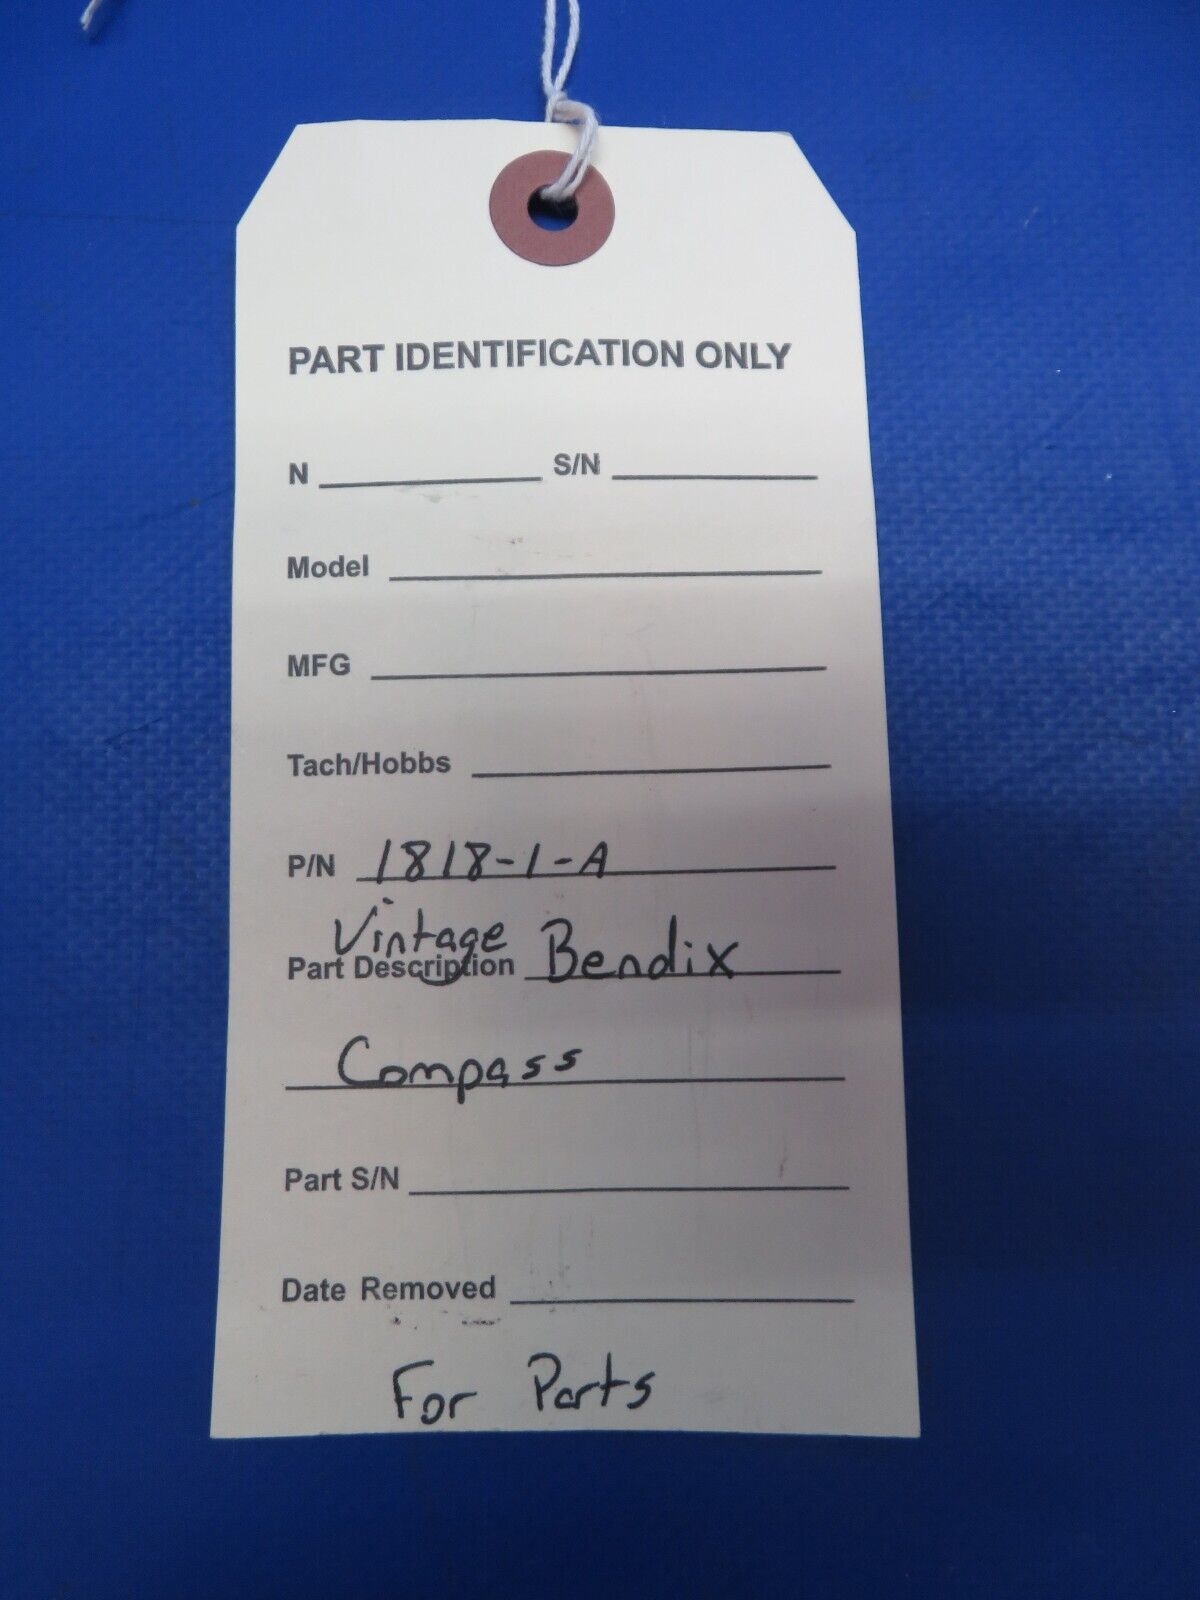 PART IDENTIFICATION ONLY
N S/N
Model
MFG
Tach/Hobbs
P/N 1818-1-A
Vintage Bendix
Part Description
Compass
Part S/N
Date Removed
For Parts